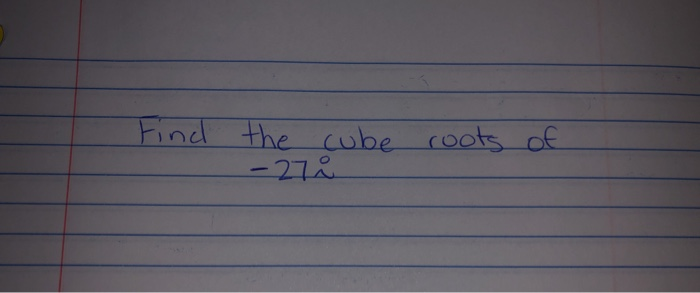 Find the cube roots of
-27i